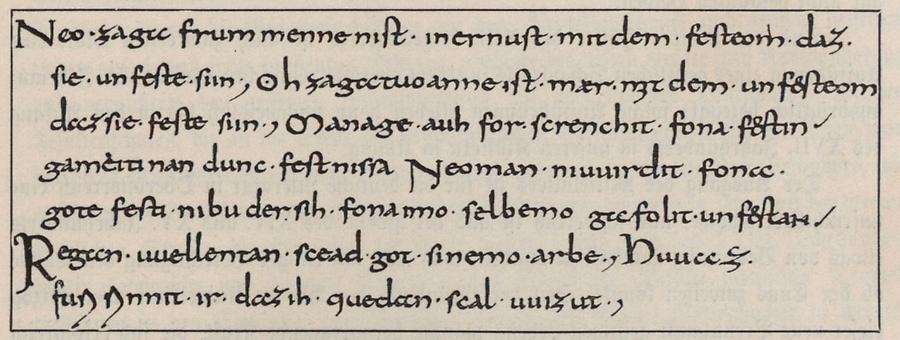 Neo· zagec frummenne nist· mernust· mit dem· festeom· daz·
sie· unfeste· sun, Oh zagectuoanne ist· mær· nzt dem· unfesteom
decz sie· feste sun·, Manage· auh for· screnchit· fona· festin
gamėitinan dunc· festnissa Neoman· niuuirdit· foncc·
gote festi· nibu der sih· fona imo· selbemo gecfolit· unfestan
Regecn· uuellentan· scead· got· sinemo· arbe, Huueez·
fun nnnit· ir· decz ih· quedecn· scal· uuizut·,